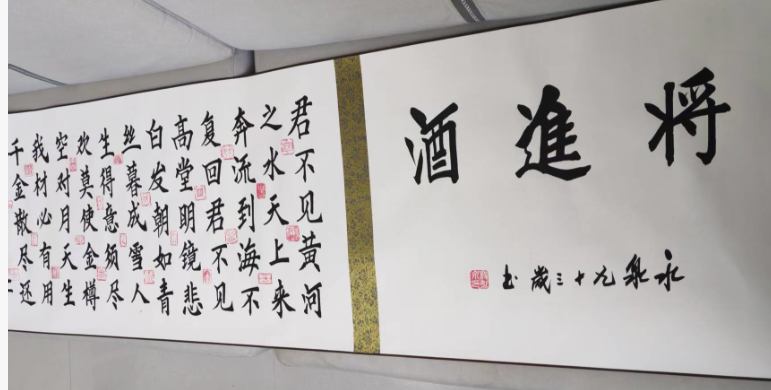 将進酒
永泉九十三歲书
君不见黄河
之水天上来
奔流到海不
复回君不见
高堂明镜悲
白发朝如青
丝暮成雪人
生得意须尽
欢莫使金樽
空对月天生
我材必有用
千金散尽还